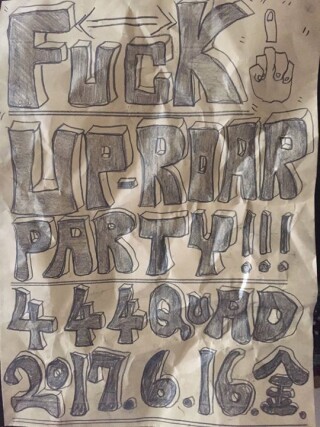 FUCK
UP-ROAR
PARTY!!!
444QUAD
2017.6.16.金.